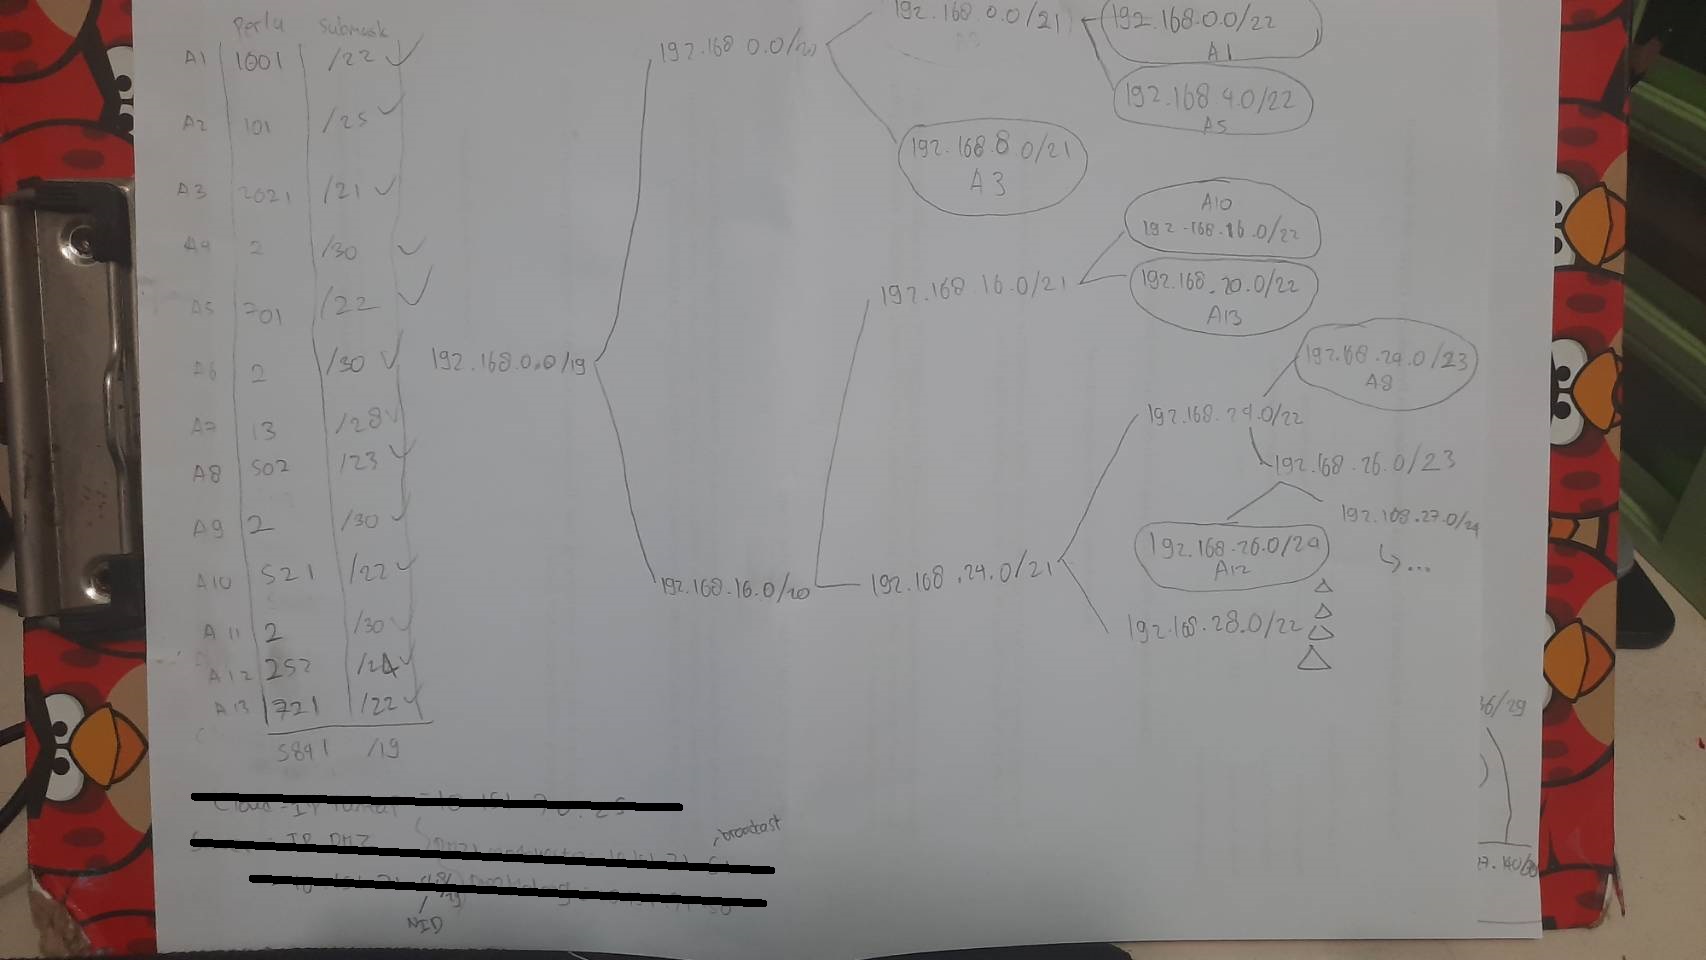 Perlu submask
A1 1001 /22 ✓
A2 101 /25 ✓
A3 2021 /21 ✓
A4 2 /30 ✓
A5 701 /22 ✓
A6 2 /30 ✓
A7 13 /28 ✓
A8 502 /23 ✓
A9 2 /30 ✓
A10 521 /22 ✓
A11 2 /30 ✓
A12 252 /24 ✓
A13 721 /22 ✓
5841 /19
192.168.0.0/19
192.168 0.0/20
192.168.16.0/20
192.168 0.0/21
192.168.8.0/21
A3
192.168.16.0/21
192.168.24.0/21
192.168.0.0/22
A1
192.168.4.0/22
A5
A10
192.168.16.0/22
192.168.20.0/22
A13
192.168.24.0/22
192.168.28.0/22
192.168.24.0/23
A8
192.168.26.0/23
192.168.26.0/24
A12
192.168.27.0/24
↳...
broadcast
NID
36/29